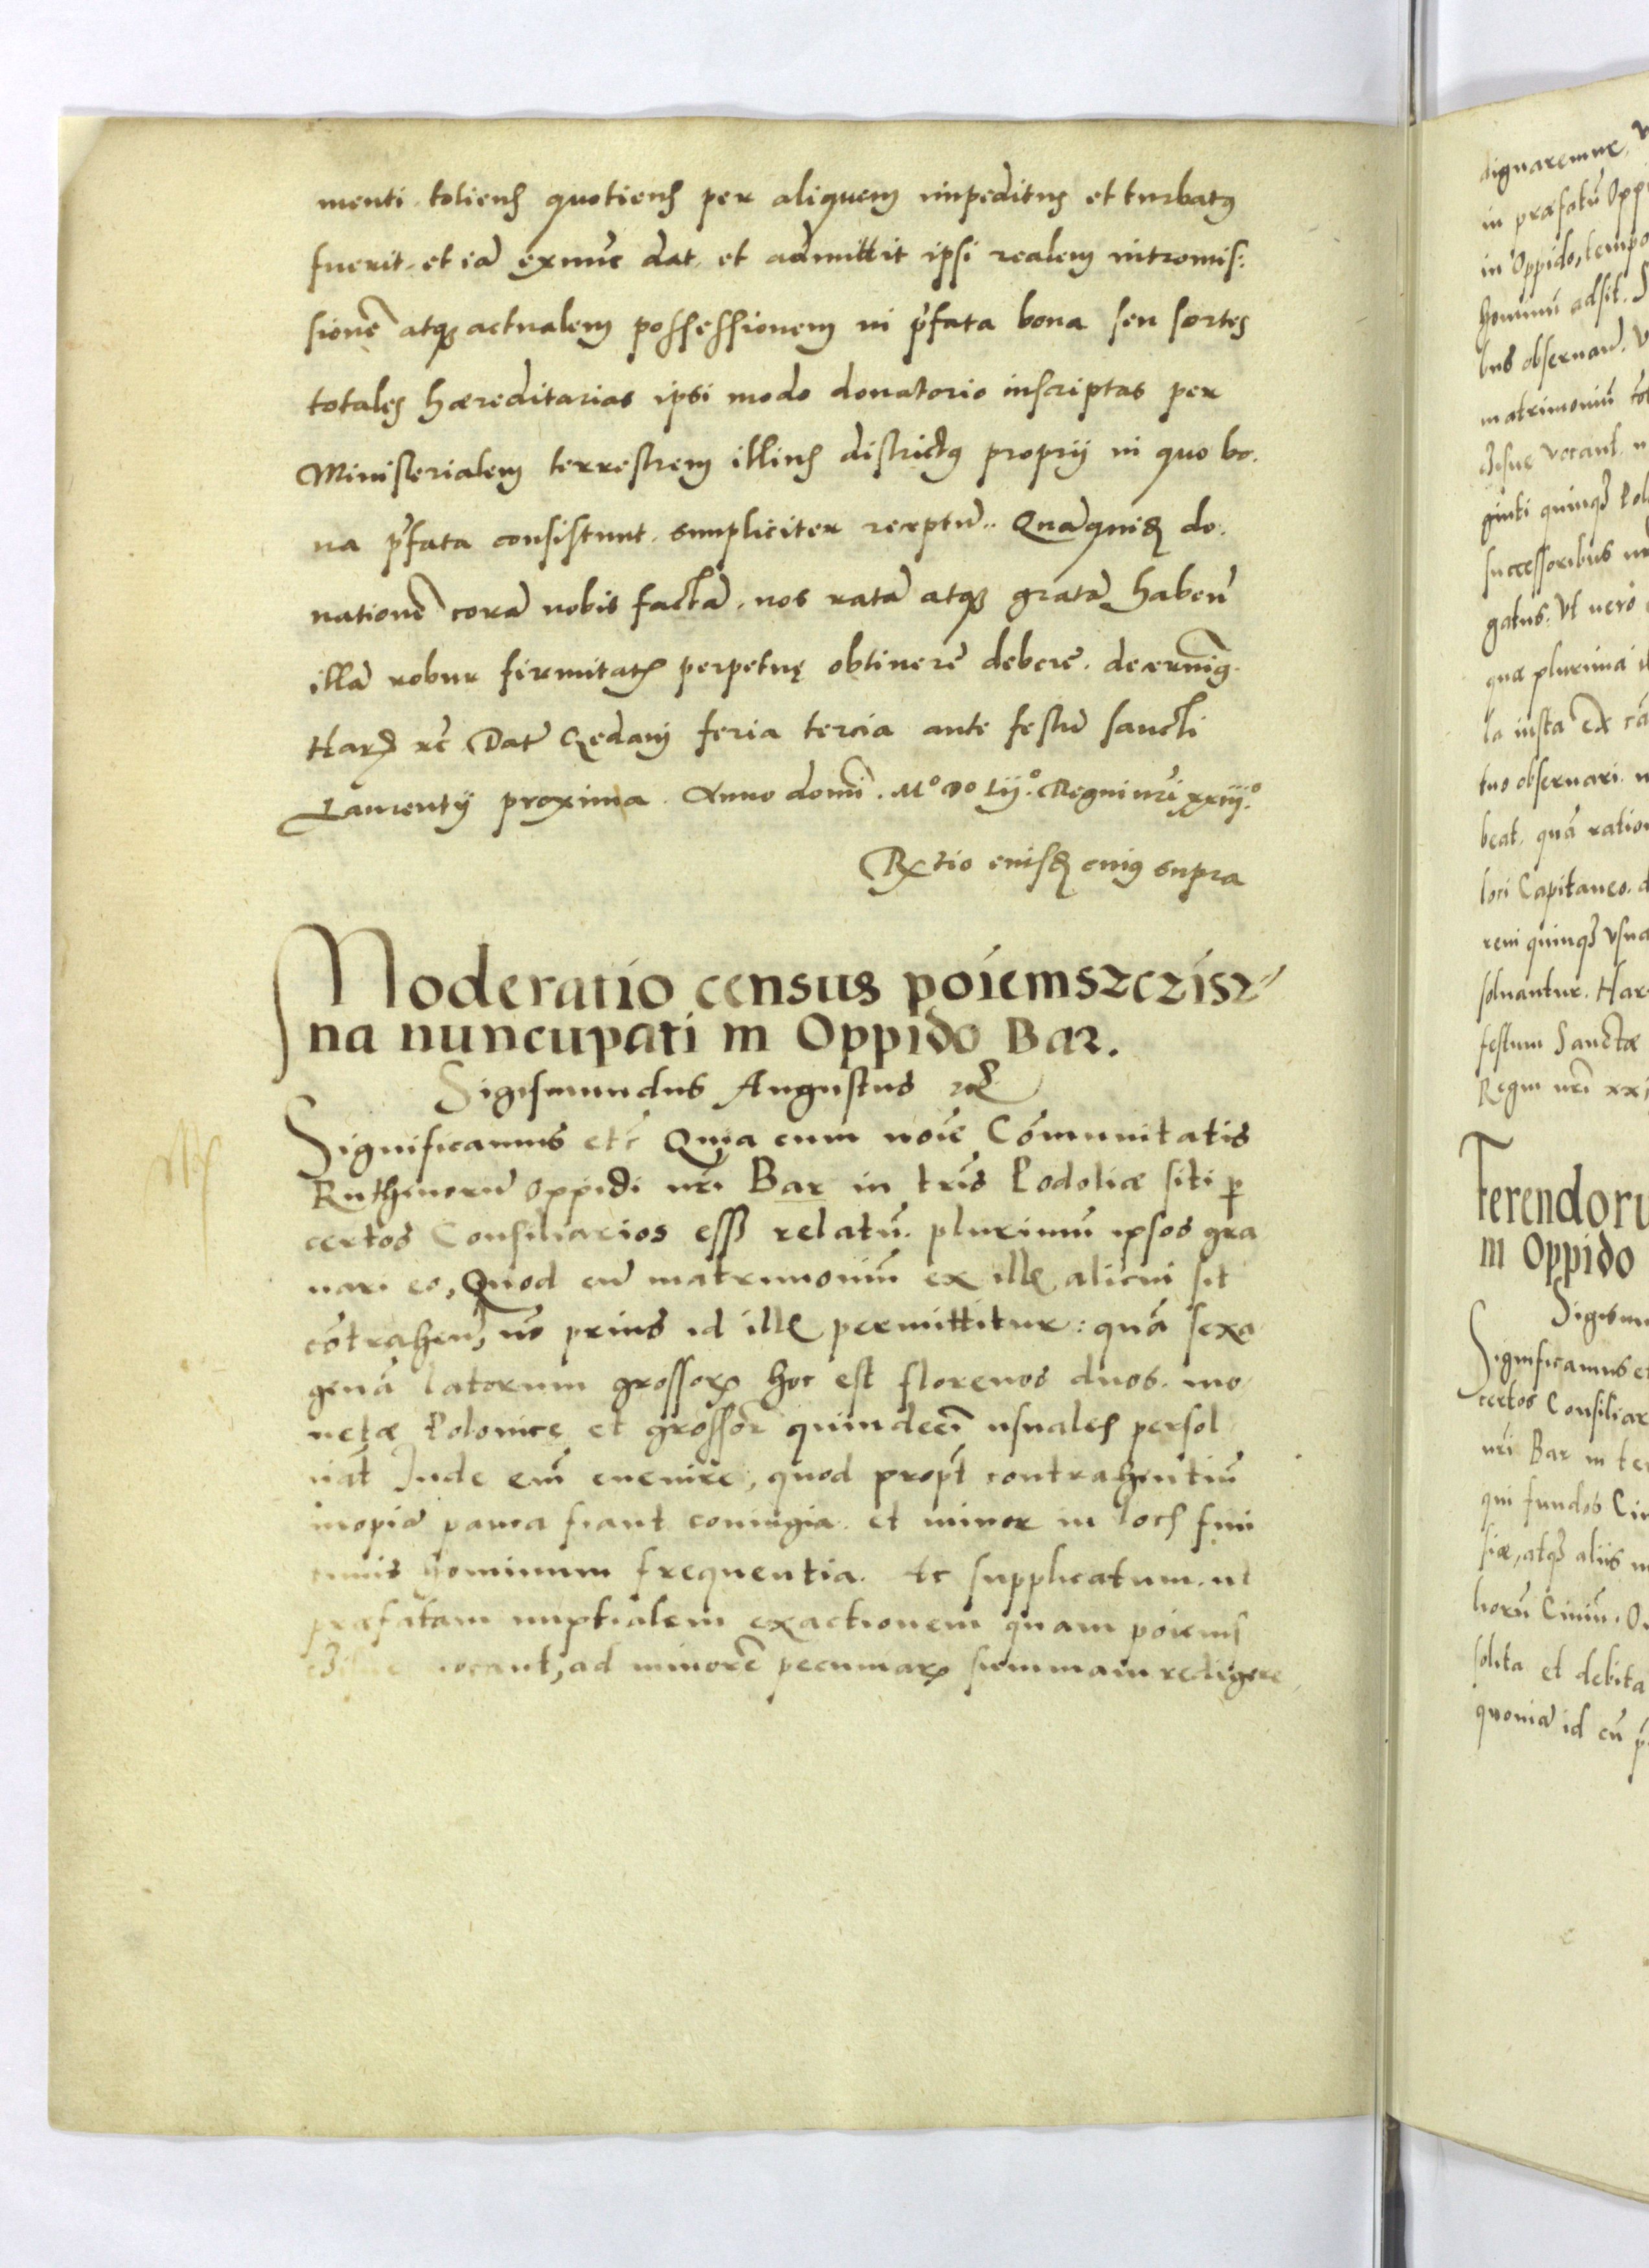 menti. totiens quotiens per aliquem impeditus et turbatus
fuerit. et iā exnūc dat. et admittit ipsi realem intromis:
sionē atqꝫ actualem possessionem in p̄fata bona seu sortes
totales hæreditarias ipsi modo donatorio inscriptas per
Ministerialem terrestrem illius districtus proprij in quo bo.
na p̄fata consistunt. simpliciter receptū.. Quāquidē do.
nationē corā nobis factā. nos ratā atqꝫ gratā habeñ
illā robur firmitatꝭ perpetuę obtinere debere. decernimꝰ.
Harꝫ rc̄ Dat̄ Gedanj feria tercia ante festū sancti
Laurentij proxima. Anno domī. Mᵒ Dᵒ Lijᵒ. Regni nr̄i xxiijᵒ.
R̄tio eiusdē cuiꝰ supra
Moderatio census poiemszczisz-
na nuncupati in Oppido Bar.
Sigismundus Augustus rc̄
Significamus etc̄ Quia cum noīe Cōmunitatis
Ruthenorū oppidi nr̄i Bar in tr̄is Podoliæ siti ꝑ
certos Consiliarios esset relatū. plurimū ipsos gra
uari eo, Quod cū matrimoniū ex illis alicui sit
cōtraheñ, nō prius id illis permittitur: quā sexa
genā latorum grossorꝝ hoc est florenos duos. mo
netæ Polonice et grossor̄ quindecī usuales persol
uat̄ Inde em̄ euenire, quod propt̄ contrahentiū
inopiā pauca fiant coniugia. et minor in locis fini
timis hominum frequentia. Ac supplicatum. ut
præfatam nuptialem exactionem quam poiems
vocant, ad minorē pecuniarꝝ summam redigere
dignaremur,
in præfatū Opp
in Oppido, tempo
hominū adsit. S
bus obseruañ. V
matrimoniū
vocant.
ginti quinqꝫ Pol
successoribus
gatus: Vt uero
quæ plurima
la iusta
tuo obseruari.
beat, quā ratio
loci Capitaneo.
reni quinqꝫ usua
soluantur. Har
festum Sanctæ
Regni nr̄i xx
Ferendoru
in Oppido
Sigismu
Significamus et
certos Consiliar
nr̄i Bar in ter
qui fundos Ciu
siæ, atqꝫ aliis
liorū Ciuiū.
solita et debita
quoniā id cū